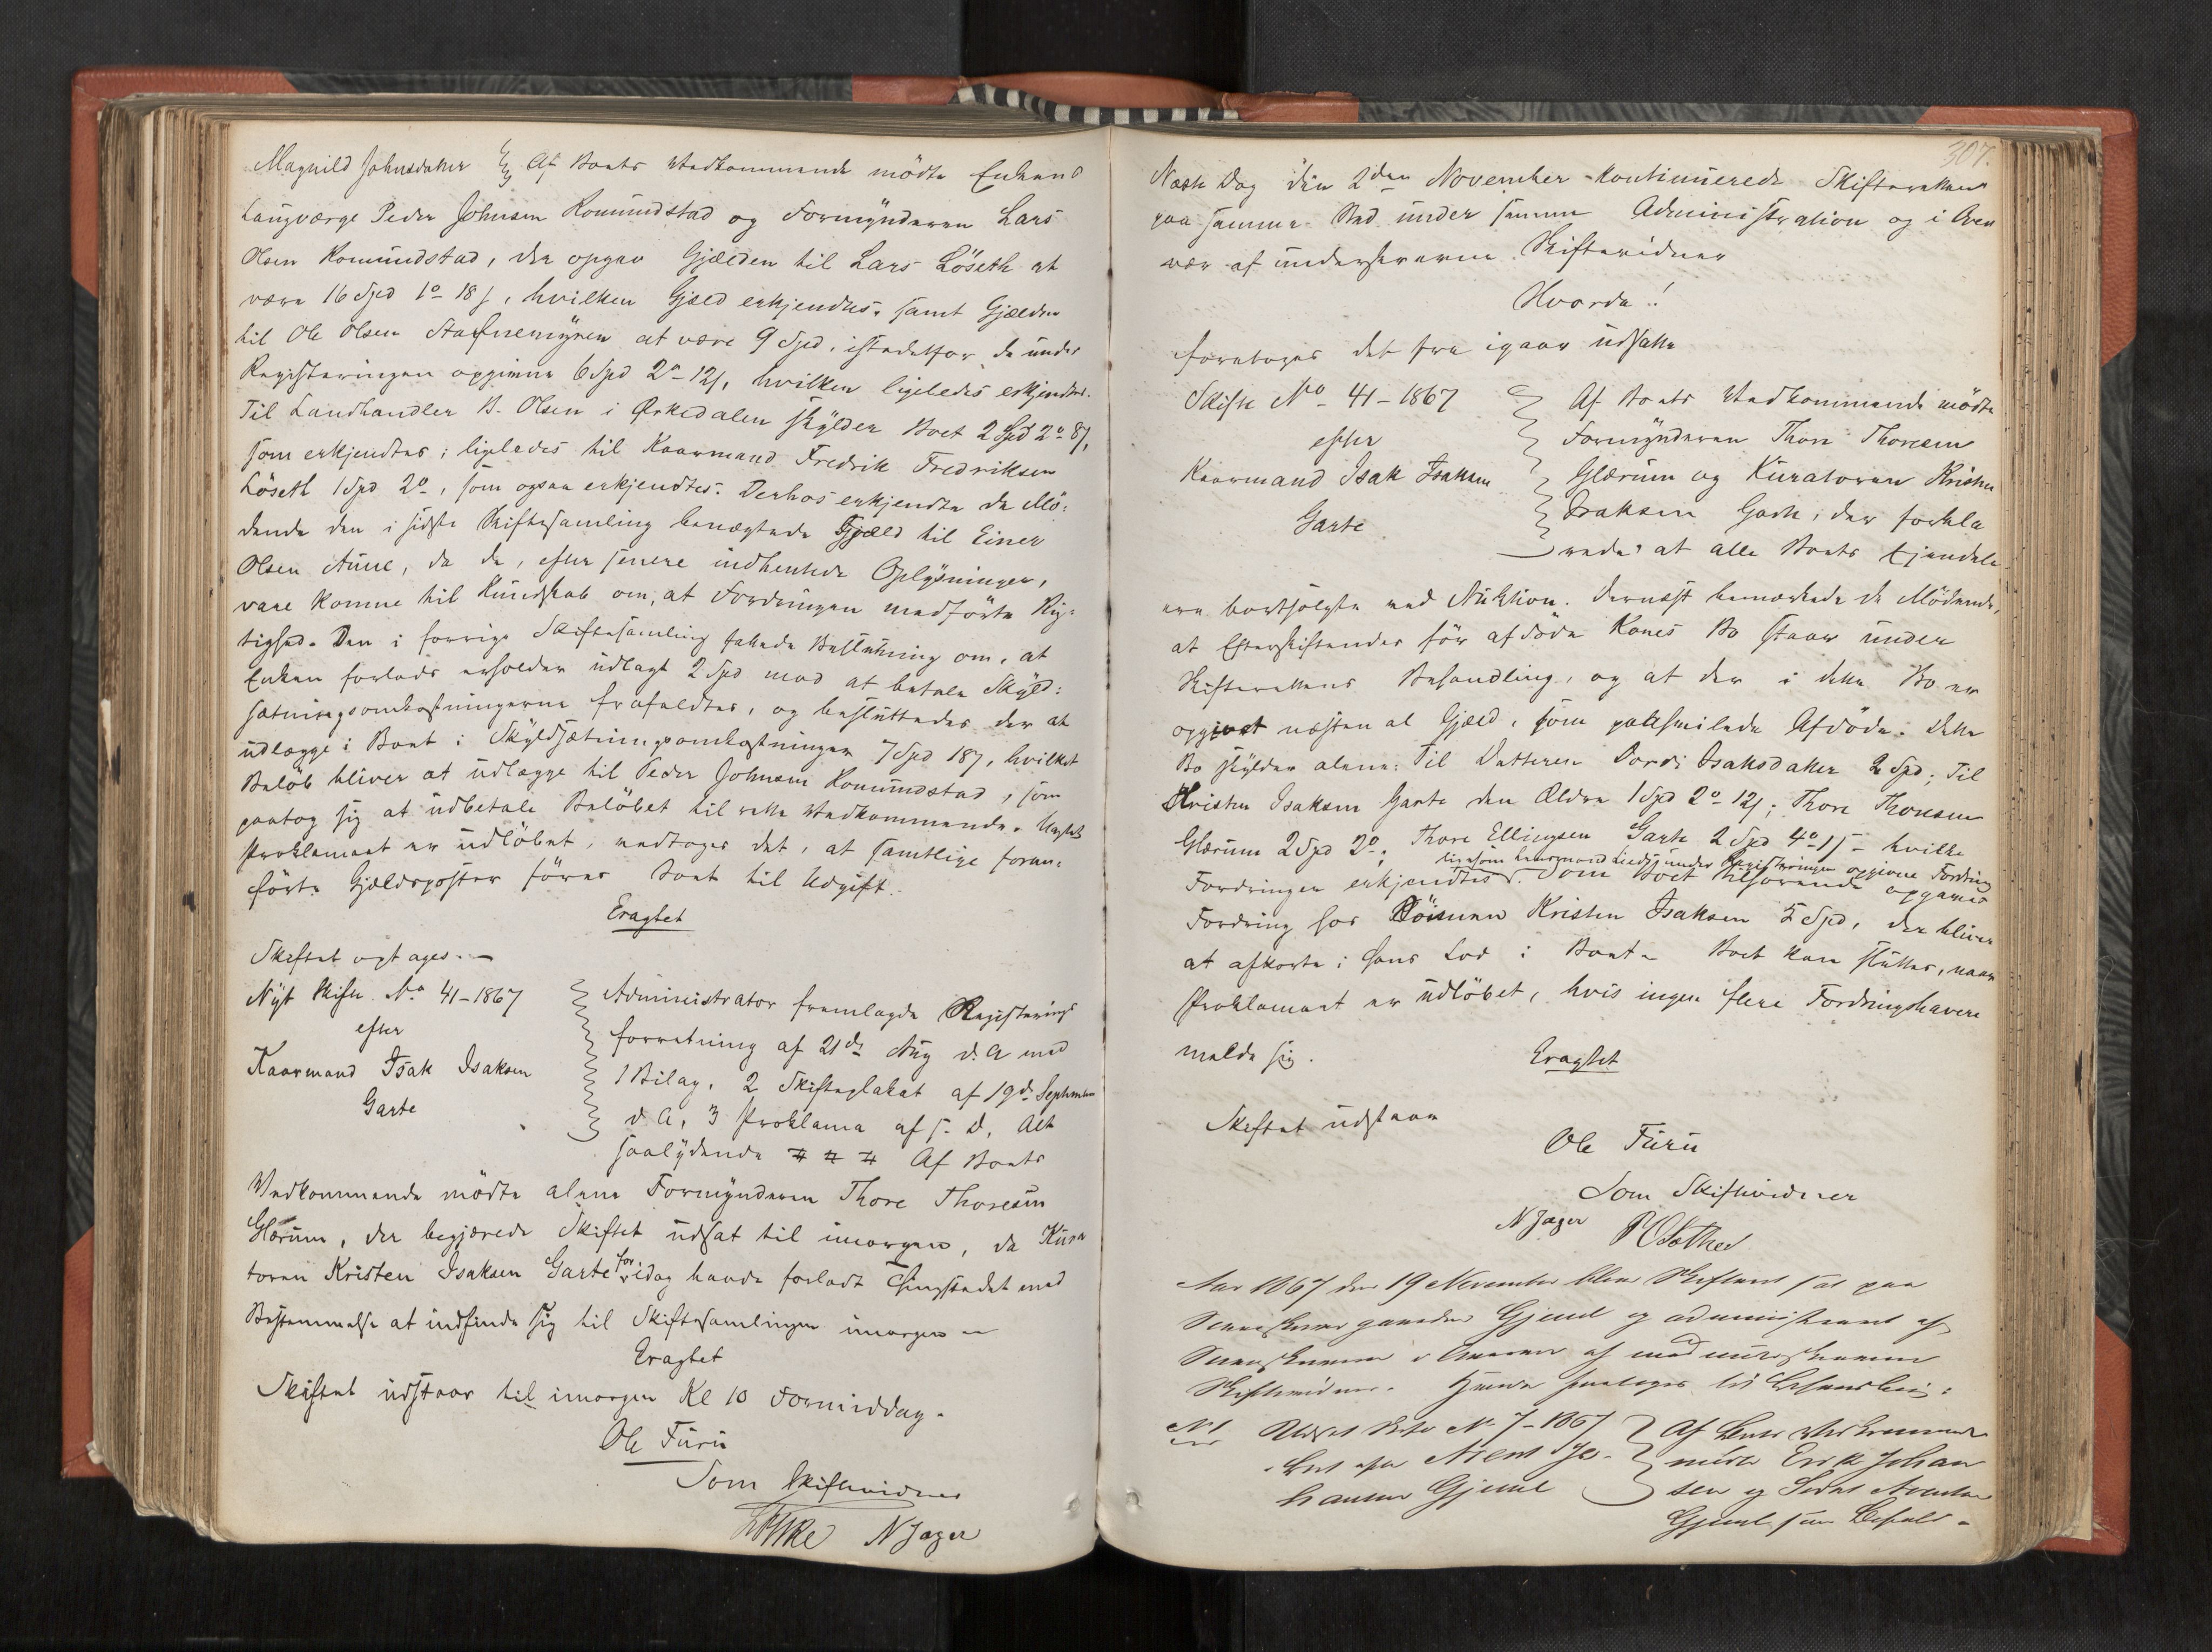 Magnild Johnsdatter Af Boets Vedkommende mödte Enkens
Laugværge Peder Johnsen Komundstad og Formynderen Lars
Olsen Komundstad, der opgav Gjælden til Lars Löseth at
være 16 Spd 1o 18 s, hvilken Gjæld erkjendtes, samt Gjælden
til Ole Olsen Stafnemyren at være 9 Spd, istedetfor de under
Registeringen opgivne 6 Spd 2o 12 s, hvilken ligeledes erkjendtes.
Til Landhandler B. Olsen i Ørkedalen skylder Boet 2 Spd 2o 8 s,
som erkjendtes; ligeledes til Kaarmand Fredrik Fredriksen
Löseth 1 Spd 2o, som ogsaa erkjendtes. Derhos erkjendte de Mö:
dende den i sidste Skiftesamling benægtede Gjæld til Einer
Olsen Aune, da de, efter senere indhentede Oplysninger,
vare komne til Kundskab om, at Fordringen medförte Rig:
tighed. Den i forrige Skiftesamling fattede Beslutning om, at
Enken forlods erholder udlagt 2 Spd mod at betale Skyld:
sætningsomkostningerne frafaldtes, og besluttedes der at
udlægge i Boet i Skyldsætningsomkostninger 7 Spd 18 s, hvilket
Belöb bliver at udlægge til Peder Johnsen Komundstad, som
paatog sig at udbetale Belöbet til rette Vedkommende. Uagtet
Proklamaet er udlöbet, vedtoges det, at samtlige foran:
förte Gjældsposter föres Boet til Udgift.
Eragtet
Skiftet optages.
Nyt Skifte No 41-1867
efter
Kaarmand Isak Isaksen
Garte
Administrator fremlagde Registerings
forretning af 21de Aug d. A med
1 Bilag, 2 Skifteplakat af 19de September
d. A, 3 Proklama af s. D, Alt
saalydende Af Boets
Vedkommende mödte alene Formynderen Thore Thoresen
Glærum, der begjærede Skiftet udsat til imorgen, da Kura
toren Kristen Isaksen Garte for idag havde forladt Thingstedet med
Bestemmelse at indfinde sig til Skiftesamlingen imorgen
Eragtet
Skiftet udstaar til imorgen Kl 10 Formiddag.
Ole Furu
Som Skiftevidner
N Jager
307.
Næste Dag den 2den November kontinuerede Skifteretten
paa samme Sted under samme Administration og i Over
vær af underskrevne Skiftevidner
Hvorda!
foretoges det fra igaar udsatte
Skifte No 41-1867
efter
Kaarmand Isak Isaksen
Garte
Af Boets Vedkommende mödte
Formynderen Thore Thoresen
Glærum og Kuratoren Kristen
Isaksen Garte, der forkla
rede at alle Boets Ejendele
ere bortsolgte ved Auktion. Dernæst bemærkede de Mödende,
at Efterskiftendes för afdöde Kones Bo staar under
Skifterettens Behandling, og at der i dette Bo er
opgivet næsten al Gjæld, som paahvilede Afdöde. Dette
Bo skylder alene: Til Datteren Dordi Isaksdatter 2 Spd; Til
Kristen Isaksen Garte den Ældre 1 Spd 2o 12 s; Thore Thoresen
Glærum 2 Spd 2o; Thore Ellingsen Garte 2 Spd 4o 1 s - hvilke
ligesom Lensmand under Registeringen opgivne Fordring
Fordringer erkjendtes. Som Boet tilhörende opgaves
Fordring hos Sönnen Kristen Isaksen 5 Spd, der bliver
at afkorte i hans Lod i Boet. Boet kan sluttes, naar
Proklamaet er udlöbet, hvis ingen flere Fordringshavere
melde sig.
Eragtet
Skiftet udstaar
Ole Furu
Som Skiftevidner
N Jager
Aar 1867 den 19 November blev Skifteret sat paa
Sorenskrivergaarden Gjemel og administreret af
Sorenskriveren i Overvær af medunderskrevne
Skiftevidner. Hvorda foretoges til Behandling:
No 1 Udsat Skifte No 7-1867
Boet efter Arent Jo-
hansen Gjemel
Af Boets Vedkommende
mödte Erik Johan
sen og
Gjemel